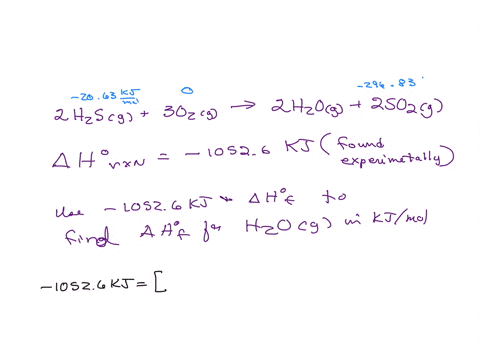 -20.63 KJ/mol 0 -296.83
2H₂S(g) + 3O₂(g) → 2H₂O(g) + 2SO₂(g)
ΔH°rxn = -1052.6 KJ (found experimetally)
Use -1052.6 KJ + ΔH°f to
find ΔH°f for H₂O(g) in KJ/mol
-1052.6 KJ = [